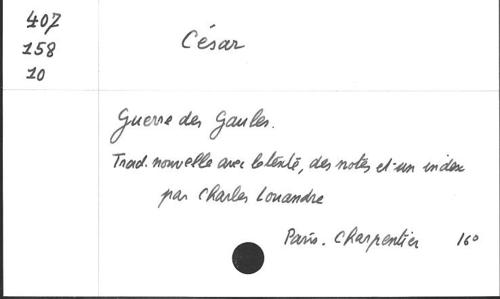 407
158
10
César
Guerre des Gaules.
Trad. nouvelle avec le texte, des notes et un index
par Charles Louandre
Paris. Charpentier 16º